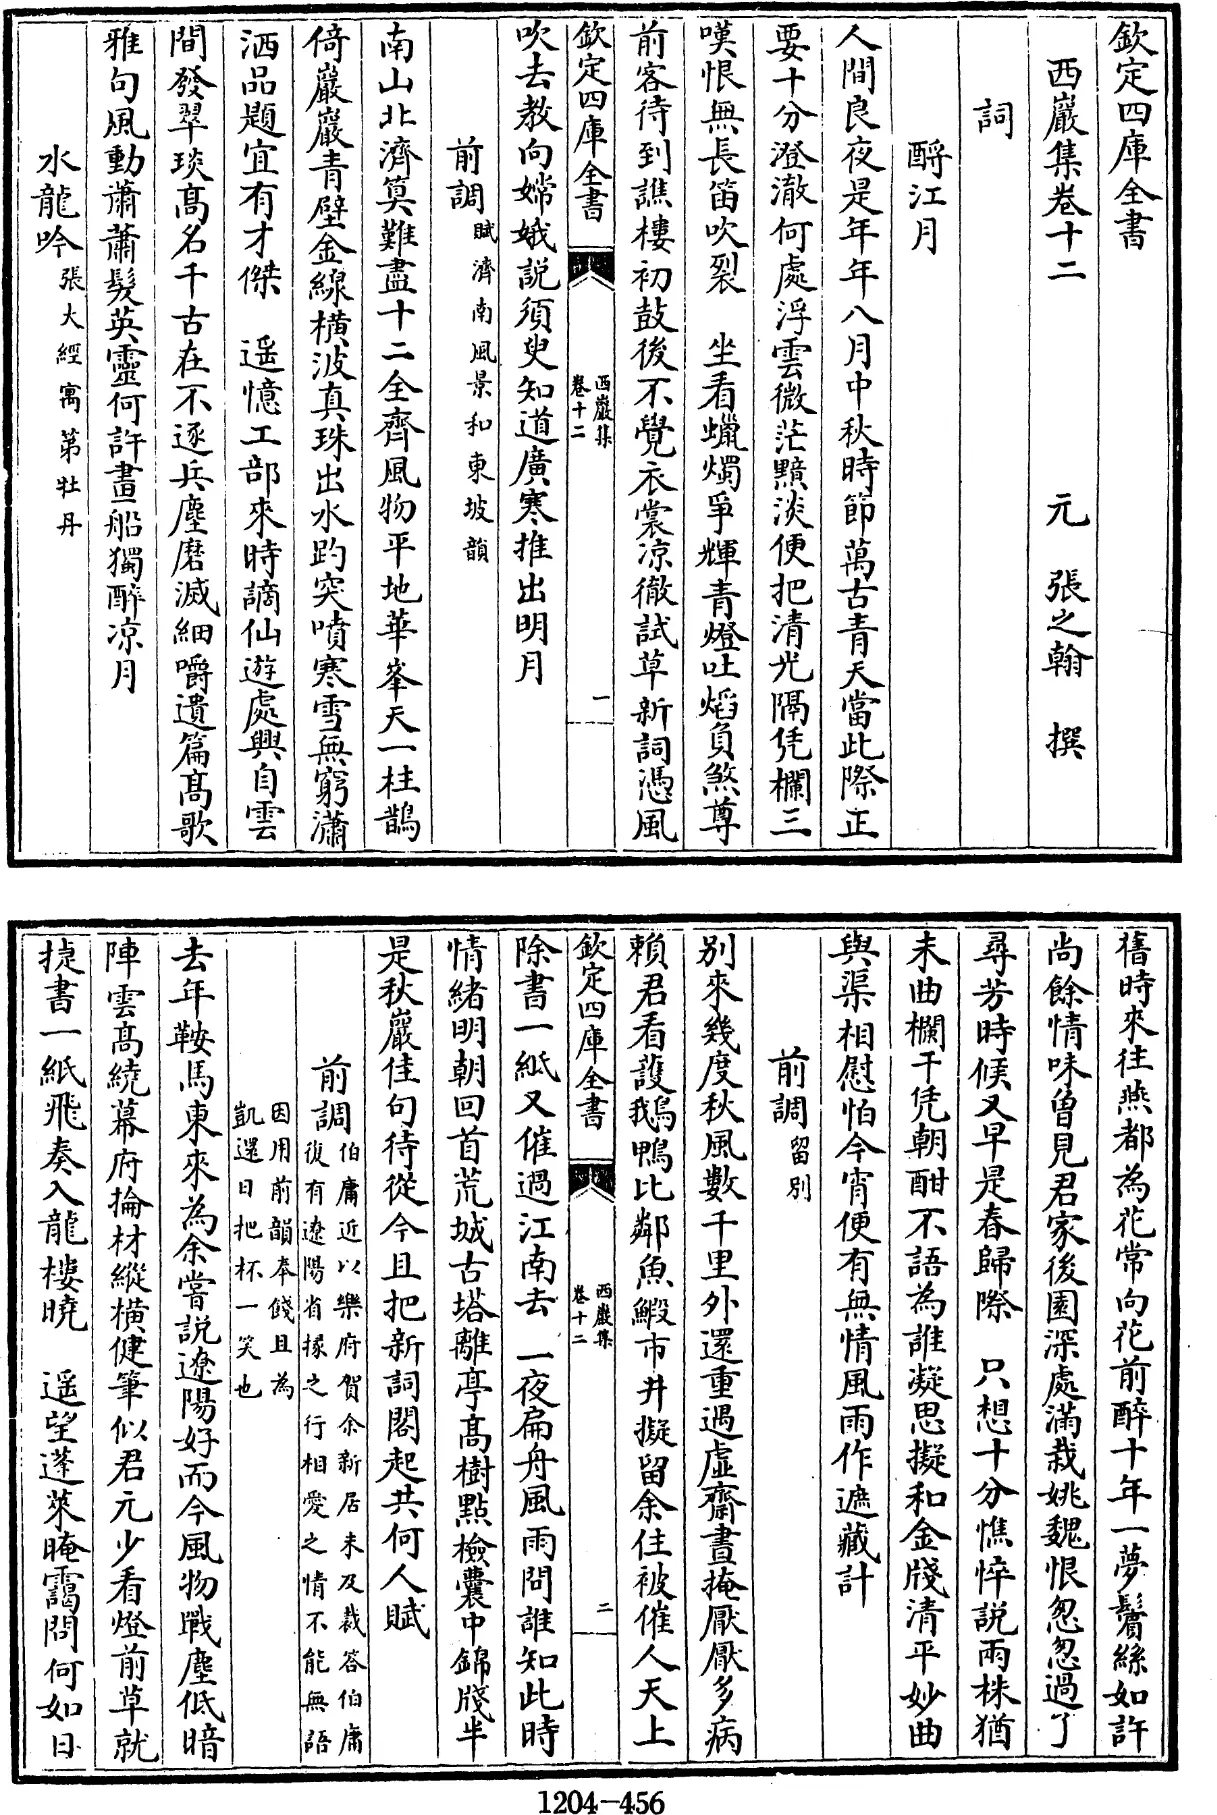 欽定四庫全書
西巖集卷十二
元　張之翰　撰
詞
酹江月
人間良夜是年年八月中秋時節萬古青天當此際正
要十分澄澈何處浮雲微茫黯淡便把清光隔凭欄三
嘆恨無長笛吹裂　坐看蠟燭爭輝青燈吐焰負煞尊
前客待到譙樓初鼓後不覺衣裳凉徹試草新詞憑風
欽定四庫全書
西巖集
卷十二
一
吹去教向嫦娥説須臾知道廣寒推出明月
前調賦濟南風景和東坡韻
南山北濟筭難盡十二全齊風物平地華峯天一柱鵲
倚巖巖青壁金線橫波真珠出水趵突噴寒雪無窮瀟
洒品題宜有才傑　遥憶工部來時謫仙遊處興自雲
間發翠琰髙名千古在不逐兵塵磨滅細嚼遺篇髙歌
雅句風動蕭蕭髮英靈何許畫船獨酹凉月
水龍吟張大經寓第牡丹
舊時來往燕都為花常向花前醉十年一夢鬢絲如許
尚餘情味曽見君家後園深處滿栽姚魏恨怱怱過了
尋芳時候又早是春歸際　只想十分憔悴説兩株猶
未曲欄干凭朝酣不語為誰凝思擬和金牋清平妙曲
與渠相慰怕今宵便有無情風雨作遮藏計
前調留別
別來幾度秋風數千里外還重過虚齋晝掩厭厭多病
賴君看䕶鵝鴨比鄰魚鰕市井擬留余住被催人天上
欽定四庫全書
西巖集
卷十二
二
除書一紙又催過江南去　一夜扁舟風雨問誰知此時
情緒明朝回首荒城古塔離亭髙樹點檢囊中錦牋半
是秋巖佳句待從今且把新詞閣起共何人賦
前調伯庸近以樂府賀余新居未及裁答伯庸
復有遼陽省掾之行相愛之情不能無語
因用前韻奉餞且為
凱還日把杯一笑也
去年鞍馬東來為余嘗説遼陽好而今風物戰塵低暗
陣雲髙繞幕府掄材縱橫健筆似君元少看燈前草就
捷書一紙飛奏入龍樓曉　遥望蓬萊晻靄問何如日
1204-456